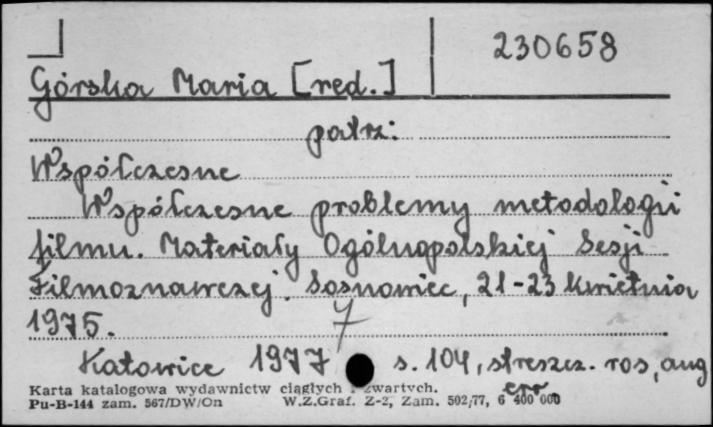 230658
Górska Maria [red.]
patrz:
Współczesne
Współczesne problemy metodologii
filmu. Materiały Ogólnopolskiej Sesji
Filmoznawczej. Sosnowiec, 21-23 kwietnia
1975.
Katowice 1977 s. 104, streszcz. ros, ang
Karta katalogowa wydawnictw ciągłych i zwartych.
Pu-B-144 zam. 567/DW/On W.Z.Graf. Z-2, Zam. 502/77, 6 400 000